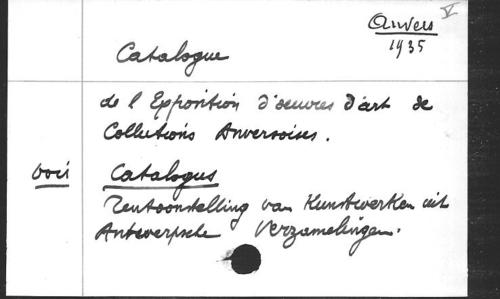 Anvers V
1935
Catalogue
de l'Exposition d'oeuvres d'art de
Collections Anversoises.
voir Catalogus
Tentoonstelling van Kunstwerken uit
Antwerpsche Verzamelingen.